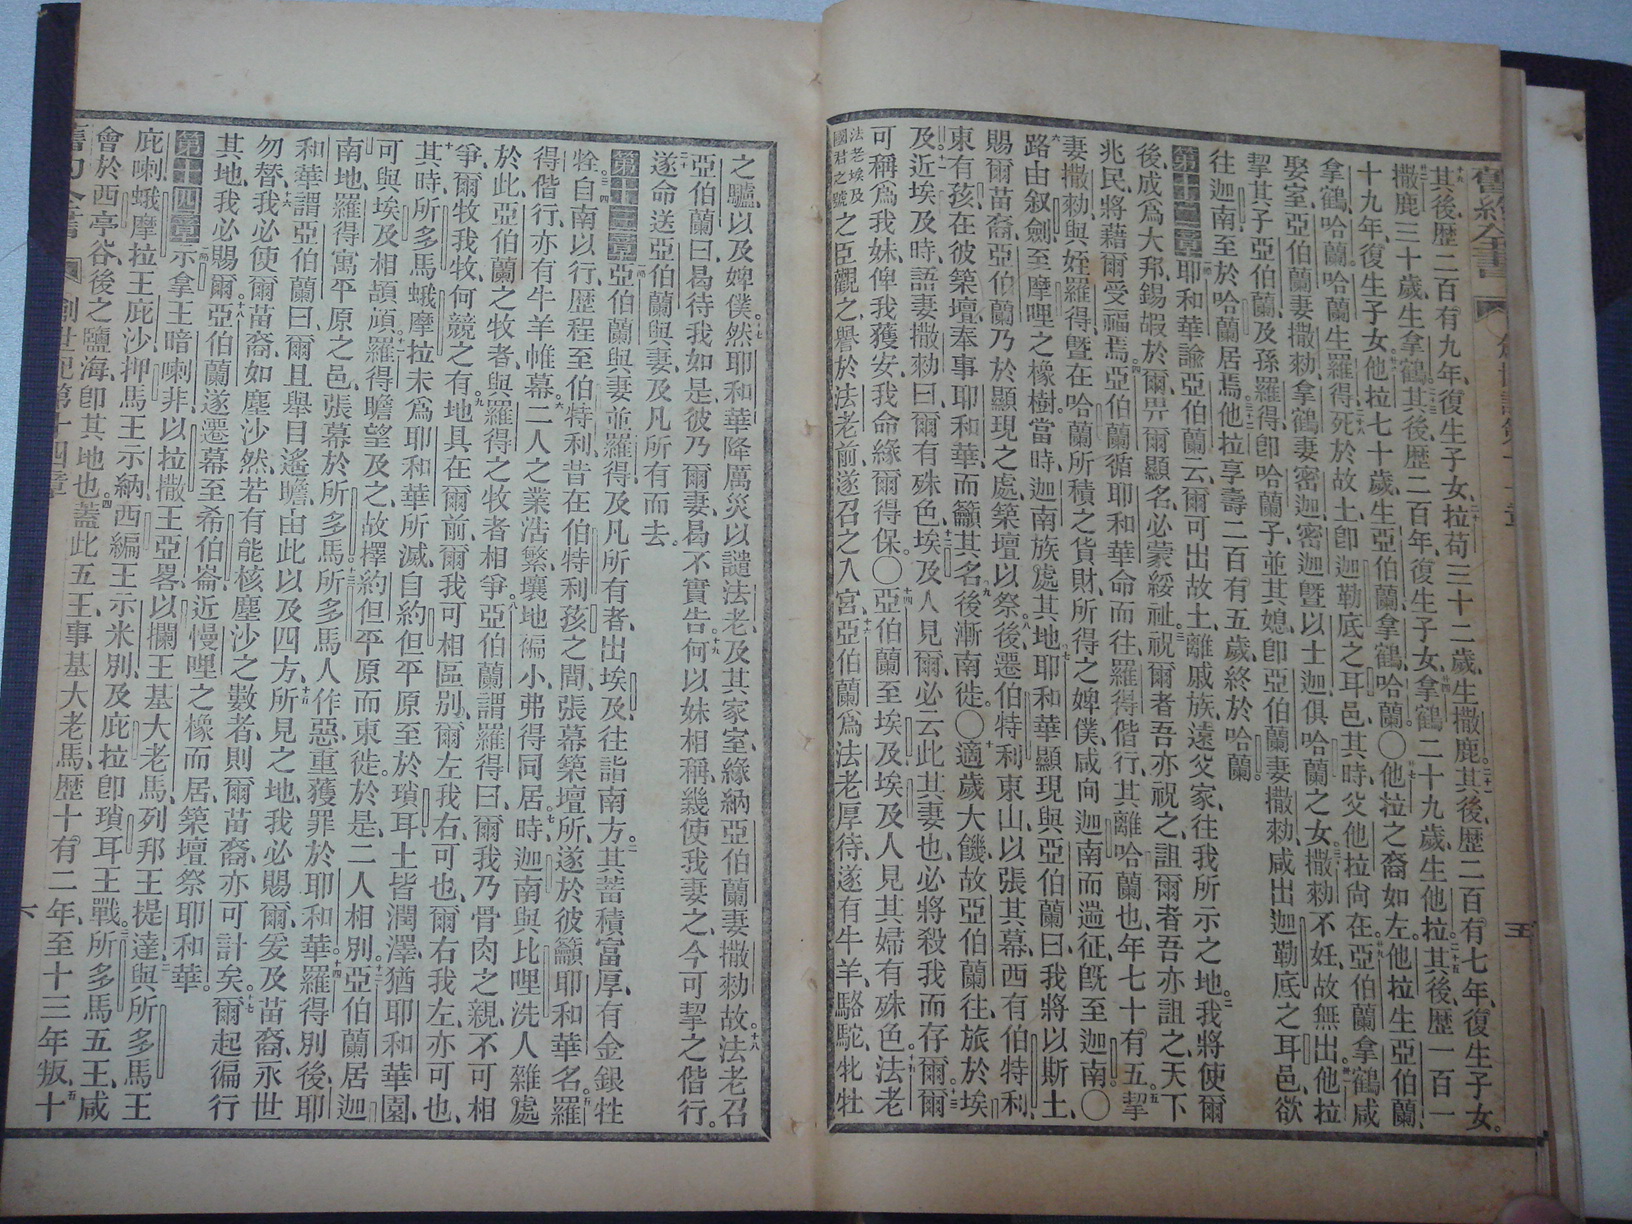 其後歷二百有九年、復生子女、拉苟三十二歲、生撒鹿、其後歷二百有七年、復生子女。
撒鹿三十歲、生拿鶴、其後歷二百年、復生子女、拿鶴二十九歲、生他拉、其後歷一百一
十九年、復生子女、他拉七十歲、生亞伯蘭、拿鶴、哈蘭。〇他拉之裔如左、他拉生亞伯蘭、
拿鶴、哈蘭、哈蘭生羅得、死於故土、卽迦勒底之耳邑、其時父他拉尙在、亞伯蘭拿鶴咸
娶室、亞伯蘭妻撒𠡠、拿鶴妻密迦、密迦暨以士迦、俱哈蘭之女、撒𠡠不妊、故無出、他拉
挈其子亞伯蘭、及孫羅得、卽哈蘭子、並其媳、卽亞伯蘭妻撒𠡠、咸出迦勒底之耳邑、欲
往迦南、至於哈蘭居焉、他拉享壽二百有五歲、終於哈蘭。
第十二章 耶和華諭亞伯蘭云、爾可出故土、離戚族、遠父家、往我所示之地、我將使爾
後成爲大邦、錫嘏於爾、畀爾顯名、必蒙綏祉、祝爾者吾亦祝之、詛爾者吾亦詛之、天下
兆民、將藉爾受福焉、亞伯蘭循耶和華命而往、羅得偕行、其離哈蘭也、年七十有五、挈
妻撒𠡠與姪羅得、暨在哈蘭所積之貨財、所得之婢僕、咸向迦南而遄征、旣至迦南。〇
路由叙劍、至摩哩之橡樹、當時迦南族處其地、耶和華顯現與亞伯蘭曰、我將以斯土、
賜爾苗裔、亞伯蘭乃於顯現之處、築壇以祭、後遷伯特利東山、以張其幕、西有伯特利、
東有孩、在彼築壇、奉事耶和華、而籲其名、後漸南徙。〇適歲大饑、故亞伯蘭往旅於埃
及、近埃及時、語妻撒𠡠曰、爾有殊色、埃及人見爾、必云此其妻也、必將殺我而存爾、爾
可稱爲我妹、俾我獲安、我命緣爾得保。〇亞伯蘭至埃及、埃及人見其婦有殊色、法老
法老埃及國君之號之臣觀之、譽於法老前、遂召之入宮、亞伯蘭爲法老厚待、遂有牛羊、駱駝、牝牡
之驢、以及婢僕、然耶和華降厲災以譴法老、及其家室、緣納亞伯蘭妻撒𠡠故、法老召
亞伯蘭曰、曷待我如是、彼乃爾妻、曷不實告、何以妹相稱、幾使我妻之、今可挈之偕行。
遂命送亞伯蘭與妻、及凡所有而去。
第十三章 亞伯蘭與妻並羅得、及凡所有者、出埃及、往詣南方、其蓄積富厚、有金銀牲
牷、自南以行、歷程至伯特利、昔在伯特利孩之間、張幕築壇所、遂於彼籲耶和華名、羅
得偕行、亦有牛羊帷幕、二人之業浩繁、壤地褊小、弗得同居、時迦南與比哩洗人雜處
於此、亞伯蘭之牧者、與羅得之牧者相爭、亞伯蘭謂羅得曰、爾我乃骨肉之親、不可相
爭、爾牧我牧、何競之有、地具在爾前、爾我可相區別、爾左我右可也、爾右我左亦可也、
其時、所多馬蛾摩拉未爲耶和華所滅、自約但平原至於瑣耳、土皆潤澤、猶耶和華園、
可與埃及相頡頏、羅得瞻望及之、故擇約但平原而東徙、於是二人相別、亞伯蘭居迦
南地、羅得寓平原之邑、張幕於所多馬、所多馬人作惡、重獲罪於耶和華、羅得別後、耶
和華謂亞伯蘭曰、爾且舉目遙瞻、由此以及四方、所見之地、我必賜爾、爰及苗裔、永世
勿替、我必使爾苗裔、如塵沙然、若有能核塵沙之數者、則爾苗裔、亦可計矣、爾起徧行
其地、我必賜爾、亞伯蘭遂遷幕至希伯崙、近幔哩之橡而居、築壇祭耶和華。
第十四章 示拿王暗喇非、以拉撒王亞畧、以攔王基大老馬、列邦王提達與所多馬王
庇喇、蛾摩拉王庇沙、押馬王示納、西編王示米別、及庇拉卽瑣耳王戰、所多馬五王、咸
會於西亭谷、後之鹽海、卽其地也、蓋此五王、事基大老馬、歷十有二年、至十三年叛、十